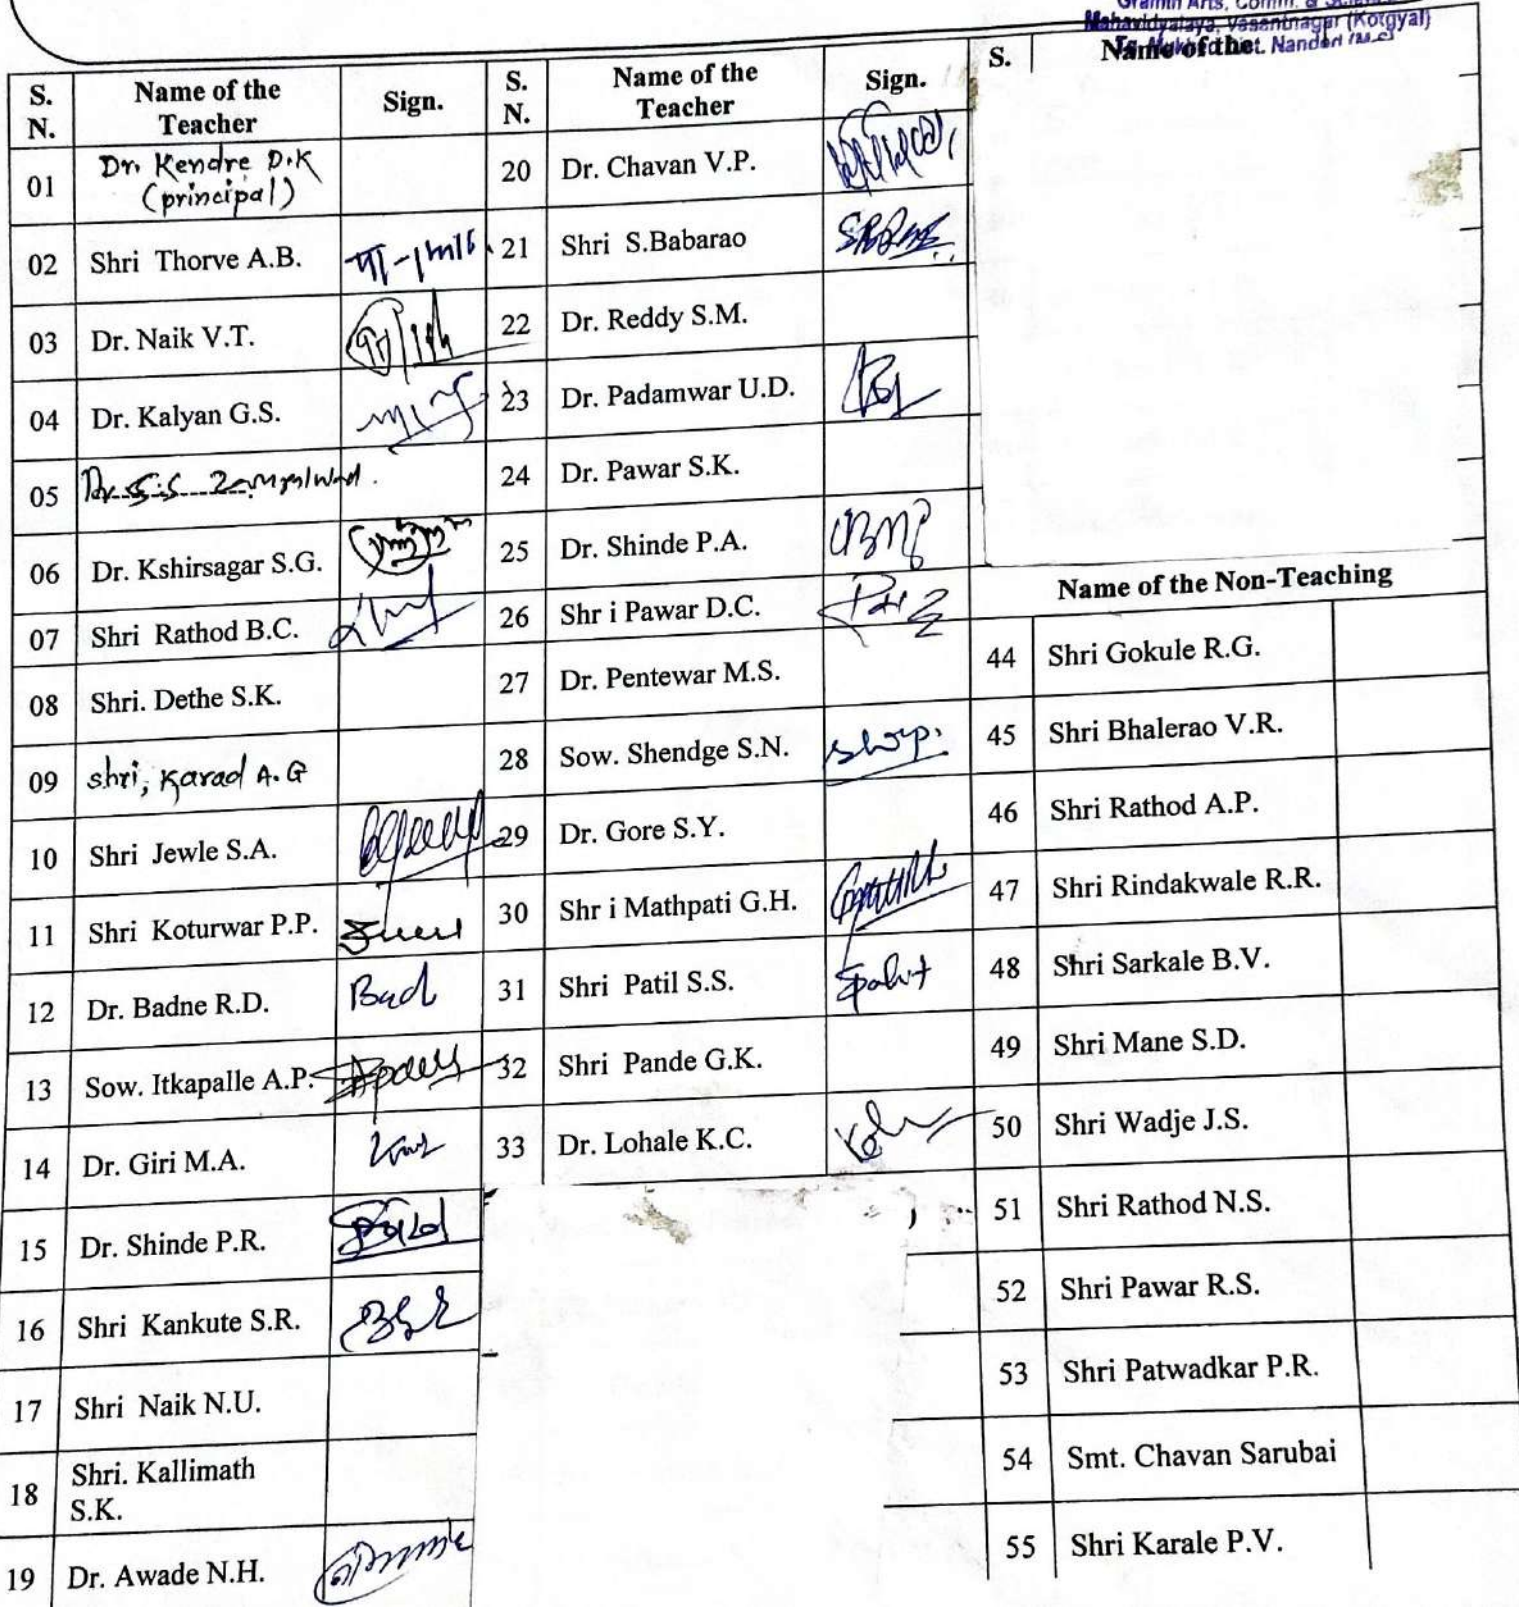 Gramin Arts, Comm. & Science
Mahavidyalaya, Vasantnagar (Kotgyal)
S. Name of the
S. N. Name of the Teacher Sign.
01 Dr. Kendre D.K (principal)
02 Shri Thorve A.B.
03 Dr. Naik V.T.
04 Dr. Kalyan G.S.
05
06 Dr. Kshirsagar S.G.
07 Shri Rathod B.C.
08 Shri. Dethe S.K.
09 shri, Karad A.G
10 Shri Jewle S.A.
11 Shri Koturwar P.P.
12 Dr. Badne R.D. Bad
13 Sow. Itkapalle A.P.
14 Dr. Giri M.A.
15 Dr. Shinde P.R.
16 Shri Kankute S.R.
17 Shri Naik N.U.
18 Shri. Kallimath S.K.
19 Dr. Awade N.H.
S. N. Name of the Teacher Sign.
20 Dr. Chavan V.P.
21 Shri S.Babarao
22 Dr. Reddy S.M.
23 Dr. Padamwar U.D.
24 Dr. Pawar S.K.
25 Dr. Shinde P.A.
26 Shr i Pawar D.C.
27 Dr. Pentewar M.S.
28 Sow. Shendge S.N.
29 Dr. Gore S.Y.
30 Shr i Mathpati G.H.
31 Shri Patil S.S.
32 Shri Pande G.K.
33 Dr. Lohale K.C.
Name of the Non-Teaching
44 Shri Gokule R.G.
45 Shri Bhalerao V.R.
46 Shri Rathod A.P.
47 Shri Rindakwale R.R.
48 Shri Sarkale B.V.
49 Shri Mane S.D.
50 Shri Wadje J.S.
51 Shri Rathod N.S.
52 Shri Pawar R.S.
53 Shri Patwadkar P.R.
54 Smt. Chavan Sarubai
55 Shri Karale P.V.